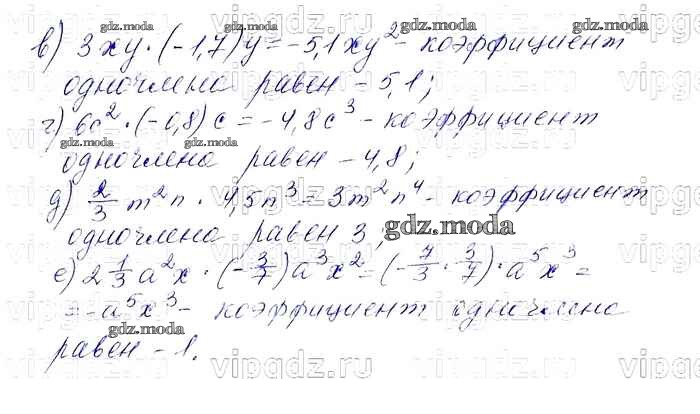 в) 3xy · (-1,7)y = -5,1xy² - коэффициент
одночлена равен -5,1;
г) 6c² · (-0,8)c = -4,8c³ - коэффициент
одночлена равен -4,8;
д) 2/3 m²n · 4,5n³ = 3m²n⁴ - коэффициент
одночлена равен 3;
е) 2 1/3 a²x · (-3/7)a³x² = (-7/3 · 3/7) · a⁵x³ =
= -a⁵x³ - коэффициент одночлена
равен -1.
gdz.moda
vipgdz.ru